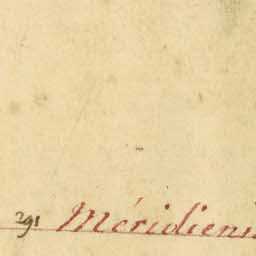 291 Méridieni